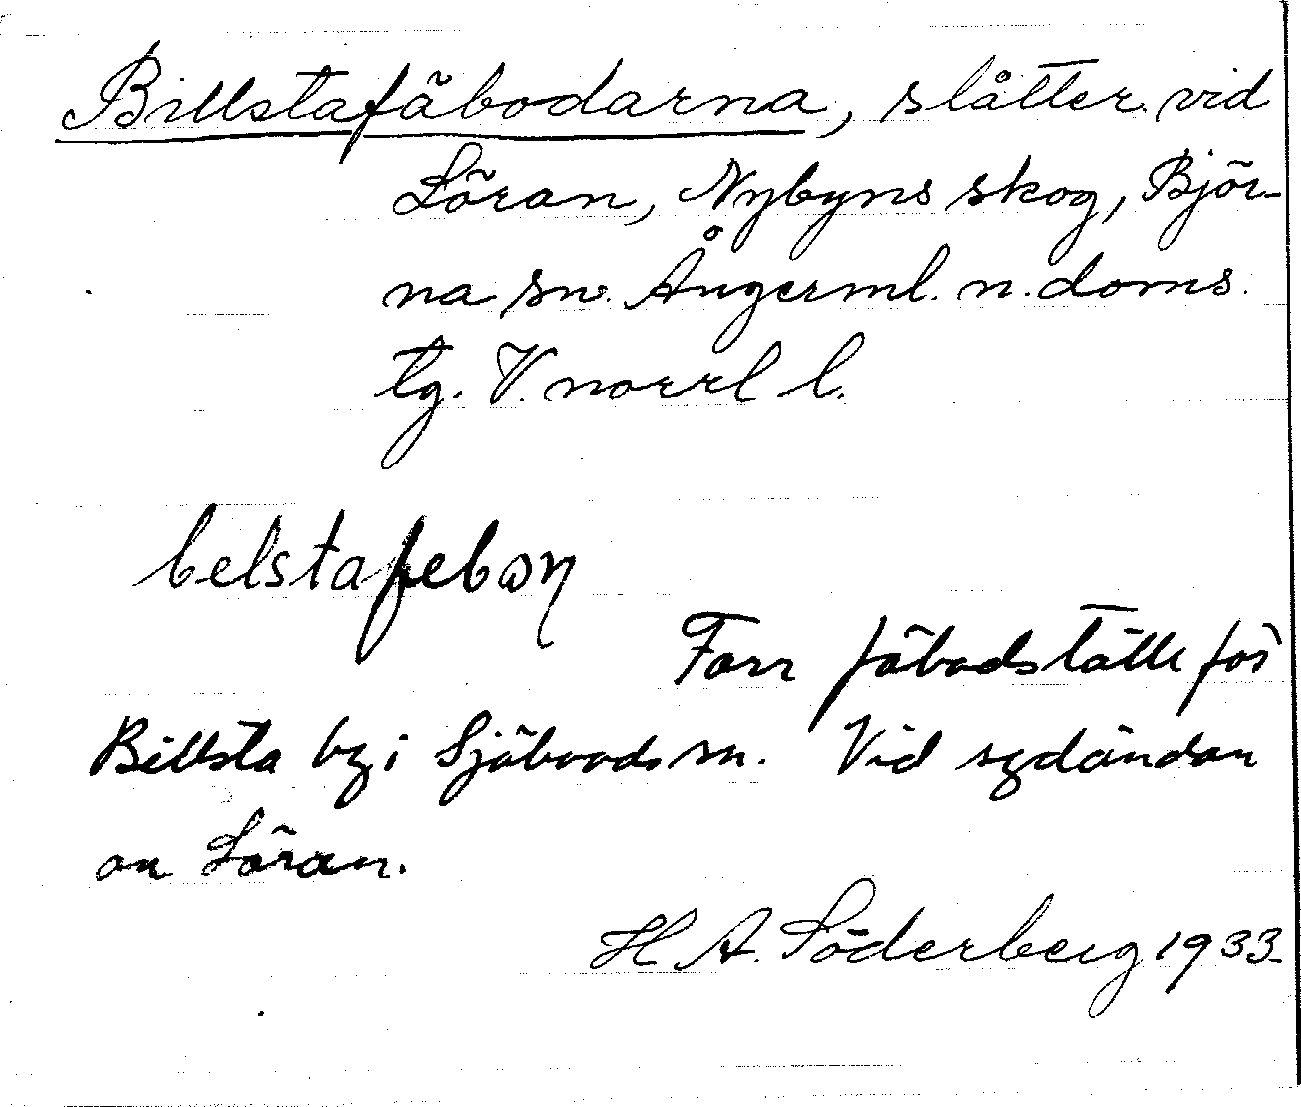 Billstafäbodarna, slåtter vid
Söran, Nybyns skog, Björ-
na sn. Ångerml. n. doms.
tg. V. norrl l.
belstafebωη
Forr fäbodställe för
Billsta by i Själevads sn. Vid sydändan
on Söran.
H A. Söderberg 1933